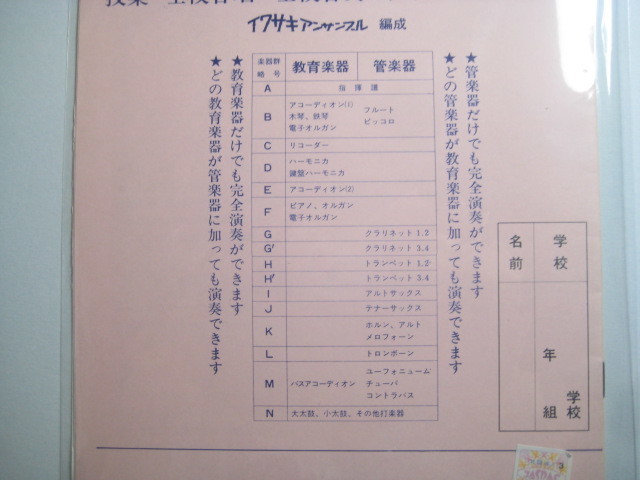 イワサキアンサンブル 編成
★管楽器だけでも完全演奏ができます
★どの管楽器が教育楽器に加っても演奏できます
楽器群略号 教育楽器 管楽器
A 指揮譜
B アコーディオン(1) 木琴、鉄琴 電子オルガン フルート ピッコロ
C リコーダー
D ハーモニカ 鍵盤ハーモニカ
E アコーディオン(2)
F ピアノ、オルガン 電子オルガン
G クラリネット1.2
G' クラリネット3.4
H トランペット1.2
H' トランペット3.4
I アルトサックス
J テナーサックス
K ホルン、アルト メロフォーン
L トロンボーン
M バスアコーディオン ユーフォニューム テューバ コントラバス
N 大太鼓、小太鼓、その他打楽器
★教育楽器だけでも完全演奏ができます
★どの教育楽器が管楽器に加っても演奏できます
学校 名前
学校
年 組